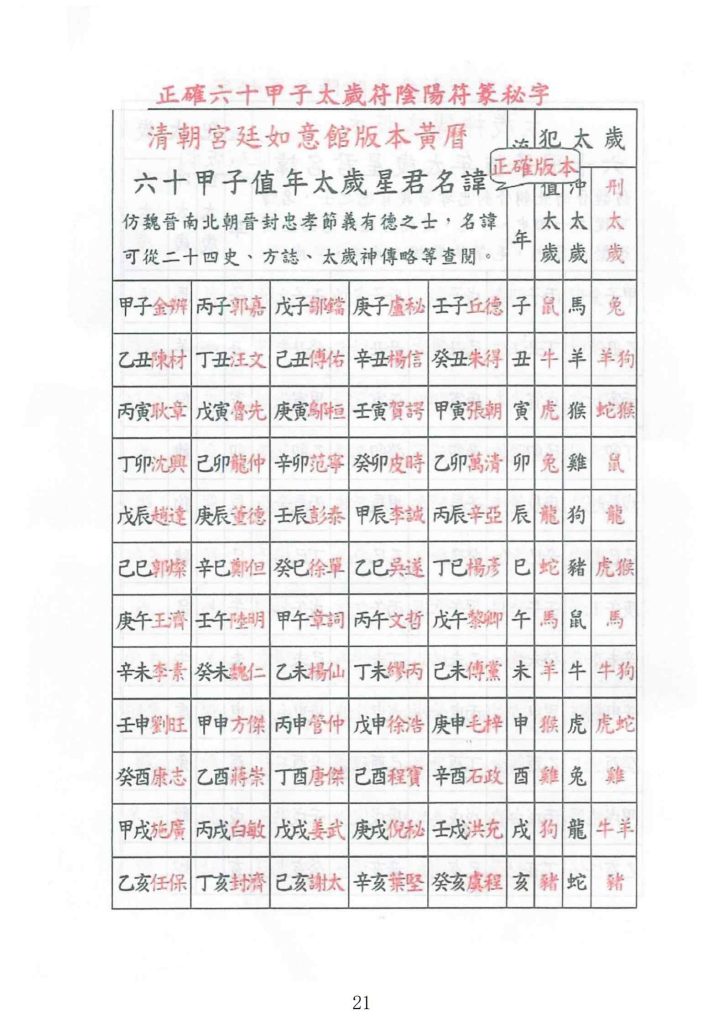 正確六十甲子太歲符陰陽符篆秘字
清朝宮廷如意館版本黃曆
六十甲子值年太歲星君名諱
仿魏晉南北朝晉封忠孝節義有德之士，名諱
可從二十四史、方誌、太歲神傳略等查閱。
流年 犯太歲
正確版本
值太歲 沖太歲 刑太歲
甲子金辨 丙子郭嘉 戊子鄒鐺 庚子盧秘 壬子丘德 子 鼠 馬 兔
乙丑陳材 丁丑汪文 己丑傅佑 辛丑楊信 癸丑朱得 丑 牛 羊 羊狗
丙寅耿章 戊寅魯先 庚寅鄔桓 壬寅賀諤 甲寅張朝 寅 虎 猴 蛇猴
丁卯沈興 己卯龍仲 辛卯范寧 癸卯皮時 乙卯萬清 卯 兔 雞 鼠
戊辰趙達 庚辰董德 壬辰彭泰 甲辰李誠 丙辰辛亞 辰 龍 狗 龍
己巳郭燦 辛巳鄭但 癸巳徐單 乙巳吳遂 丁巳楊彥 巳 蛇 豬 虎猴
庚午王濟 壬午陸明 甲午章詞 丙午文哲 戊午黎卿 午 馬 鼠 馬
辛未李素 癸未魏仁 乙未楊仙 丁未繆丙 己未傅黨 未 羊 牛 牛狗
壬申劉旺 甲申方傑 丙申管仲 戊申徐浩 庚申毛梓 申 猴 虎 虎蛇
癸酉康志 乙酉蔣崇 丁酉唐傑 己酉程寶 辛酉石政 酉 雞 兔 雞
甲戌施廣 丙戌白敏 戊戌姜武 庚戌倪秘 壬戌洪充 戌 狗 龍 牛羊
乙亥任保 丁亥封濟 己亥謝太 辛亥葉堅 癸亥虞程 亥 豬 蛇 豬
21